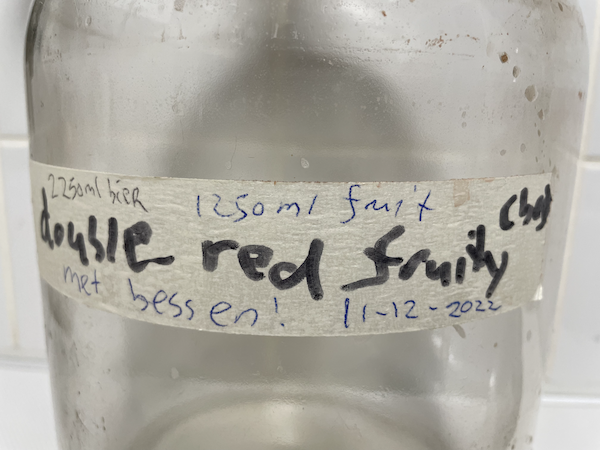 2250ml bier 1250ml fruit
double red fruity
met bessen! 11-12-2022